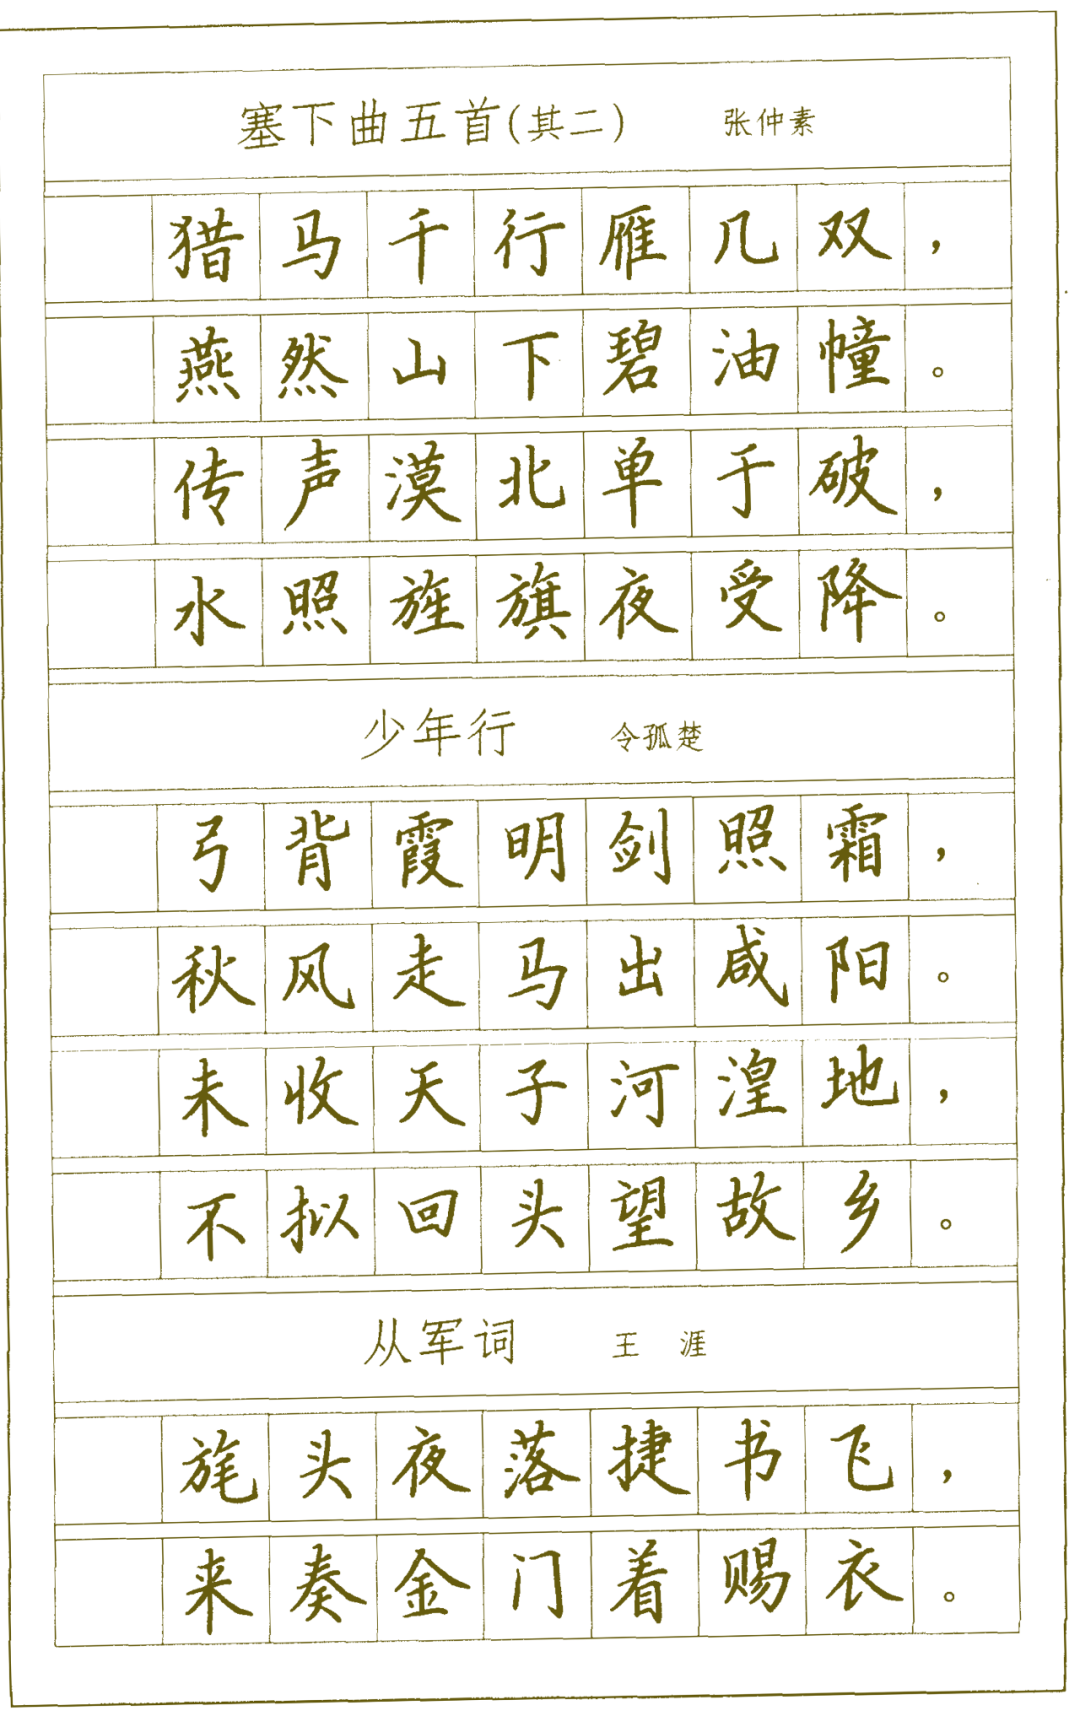 塞下曲五首(其二) 张仲素
猎马千行雁几双，
燕然山下碧油幢。
传声漠北单于破，
水照旌旗夜受降。
少年行 令孤楚
弓背霞明剑照霜，
秋风走马出咸阳。
未收天子河湟地，
不拟回头望故乡。
从军词 王 涯
旄头夜落捷书飞，
来奏金门着赐衣。